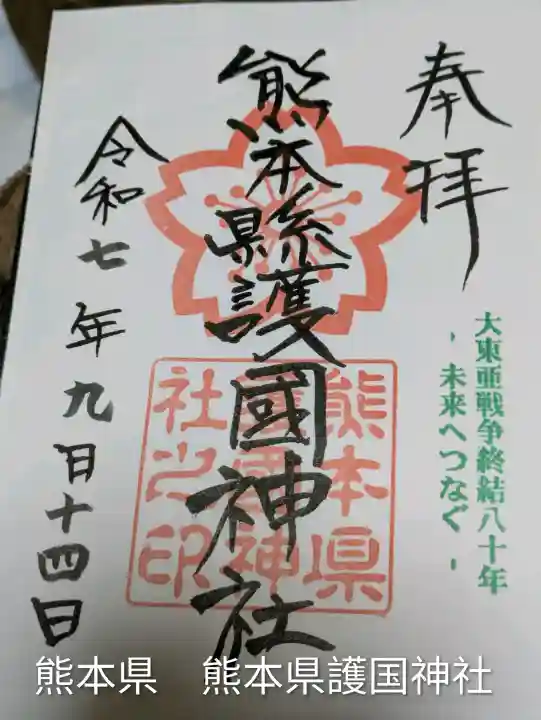 奉拝
大東亜戦争終結八十年
- 未来へつなぐ -
熊本縣護國神社
熊本県
護國神
社之印
令和七年九日十四日
熊本県 熊本県護国神社